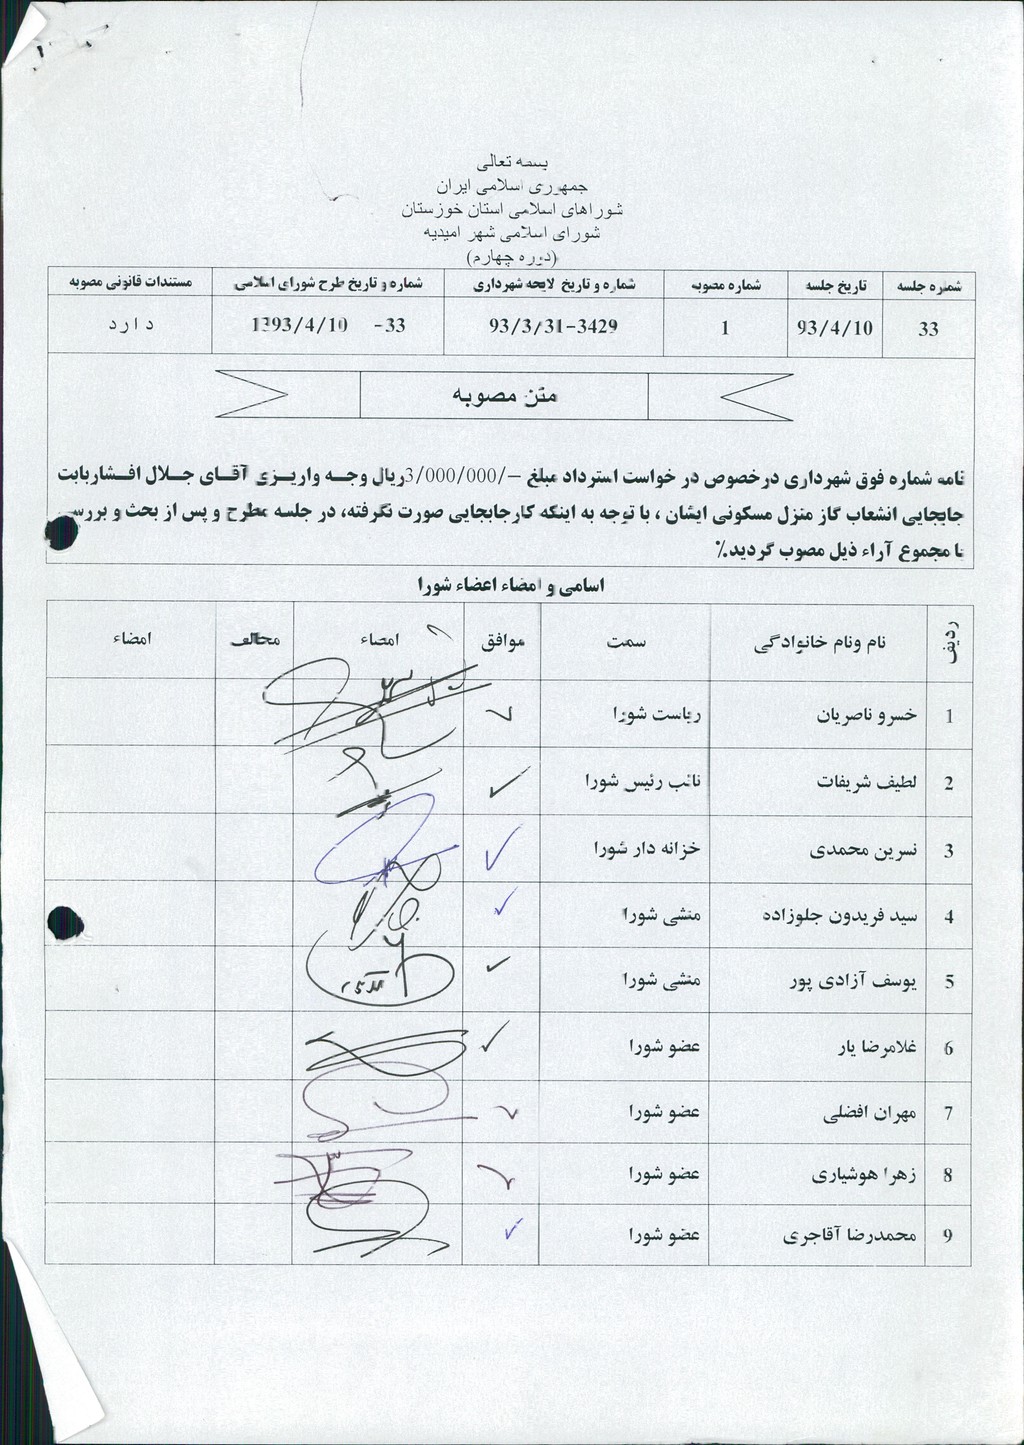 بسمه تعالی
جمهوری اسلامی ایران
شوراهای اسلامی استان خوزستان
شورای اسلامی شهر امیدیه
(دوره چهارم)
شماره جلسه	تاریخ جلسه	شماره مصوبه	شماره و تاریخ لایحه شهرداری	شماره و تاریخ طرح شورای اسلامی	مستندات قانونی مصوبه
33	93/4/10	1	93/3/31-3429	1393/4/10 -33	دارد
متن مصوبه
نامه شماره فوق شهرداری درخصوص در خواست استرداد مبلغ –/3/000/000ریال وجه واریزی آقای جلال افشاربابت
جابجایی انشعاب گاز منزل مسکونی ایشان ، با توجه به اینکه کارجابجایی صورت نگرفته، در جلسه مطرح و پس از بحث و بررسی
با مجموع آراء ذیل مصوب گردید.٪
اسامی و امضاء اعضاء شورا
ردیف	نام ونام خانوادگی	سمت	موافق	امضاء	مخالف	امضاء
1	خسرو ناصریان	ریاست شورا
2	لطیف شریفات	نائب رئیس شورا
3	نسرین محمدی	خزانه دار شورا
4	سید فریدون جلوزاده	منشی شورا
5	یوسف آزادی پور	منشی شورا
6	غلامرضا یار	عضو شورا
7	مهران افضلی	عضو شورا
8	زهرا هوشیاری	عضو شورا
9	محمدرضا آقاجری	عضو شورا